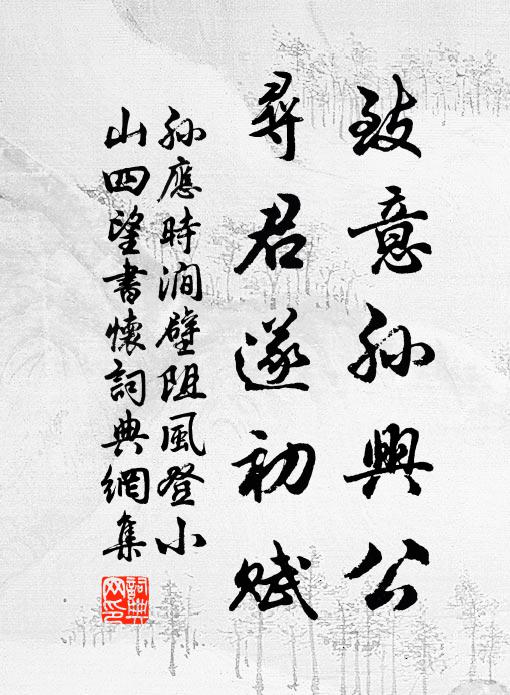 致意孙興公
尋君遂初赋
孙應時澗壁阻風登小
山四望書懷詞典網集
詞典网印